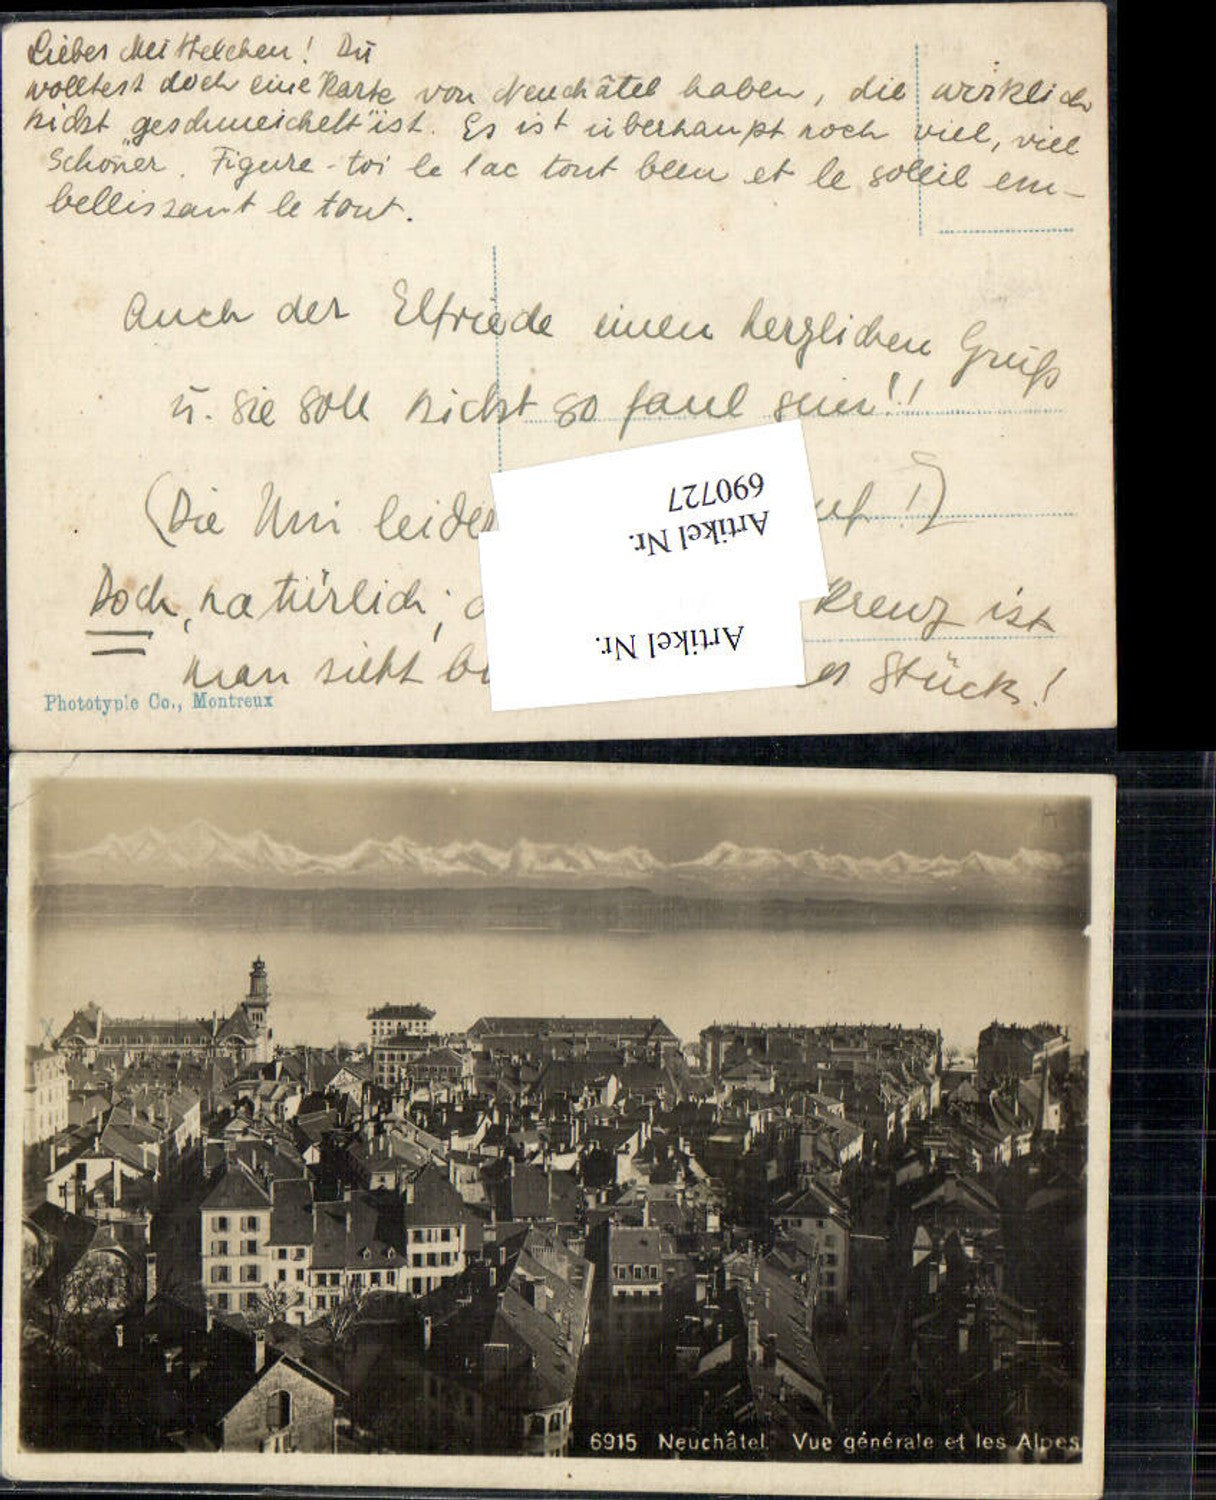 Liebes Mettelchen! Du
wolltest doch eine Karte von Neuchâtel haben, die wirklich
nicht „geschmeichelt" ist. Es ist überhaupt noch viel, viel
Schöner. Figure-toi le lac tout bleu et le soleil em-
bellissant le tout.
Auch der Elfriede einen herzlichen Gruß
u. sie soll nicht so faul sein!!
(Die Uni leider !)
Doch, natürlich; Kreuz ist
man sieht Stück!
Phototypie Co., Montreux
690727
Artikel Nr.
Artikel Nr.
6915 Neuchâtel. Vue générale et les Alpes